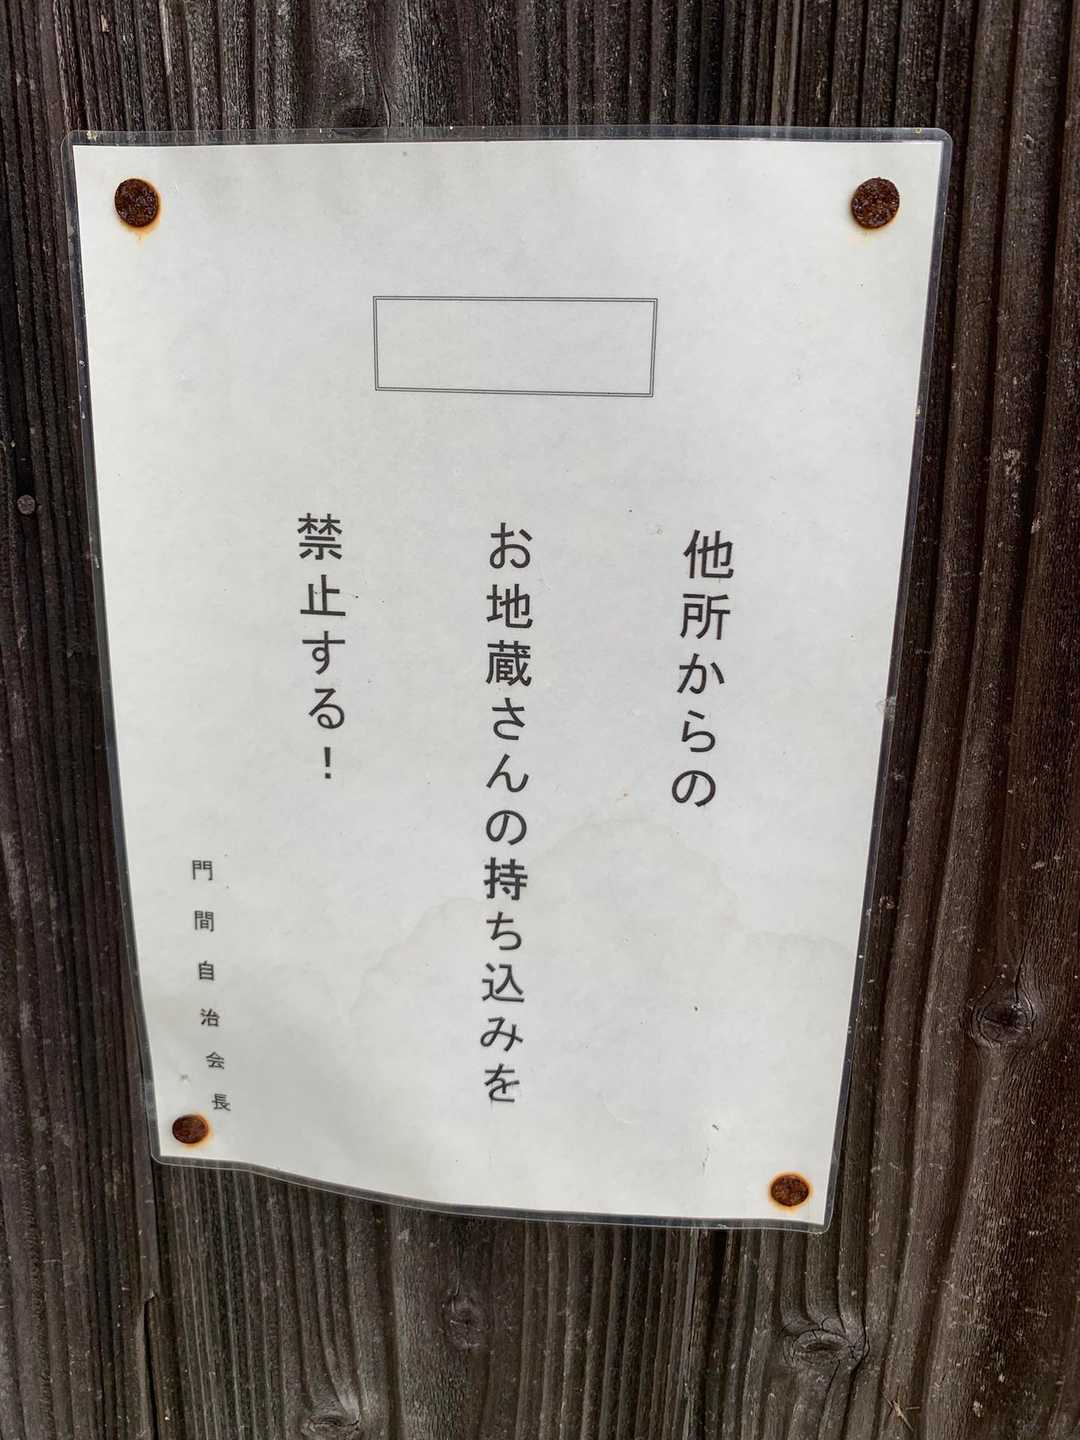 他所からの
お地蔵さんの持ち込みを
禁止する！
門間自治会長